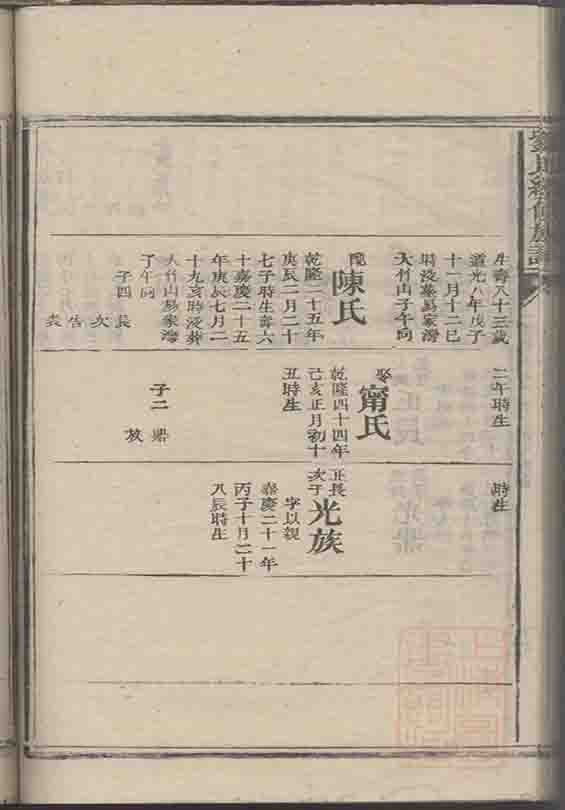 生壽八十三歲
道光八年戊子
十一月十二巳
時没葬易家灣
大竹山子午向
陳氏
乾隆二十五年
庚辰二月二十
七子時生壽六
十嘉慶二十五
年庚辰七月二
十九亥時没葬
大竹山易家灣
丁午向
子四
長
次
告
表
二午時生
娶
甯氏
乾隆四十四年
己亥正月初十
丑時生
子二
時生
正長
次子
光族
字以親
嘉慶二十一年
丙子十月二十
八辰時生